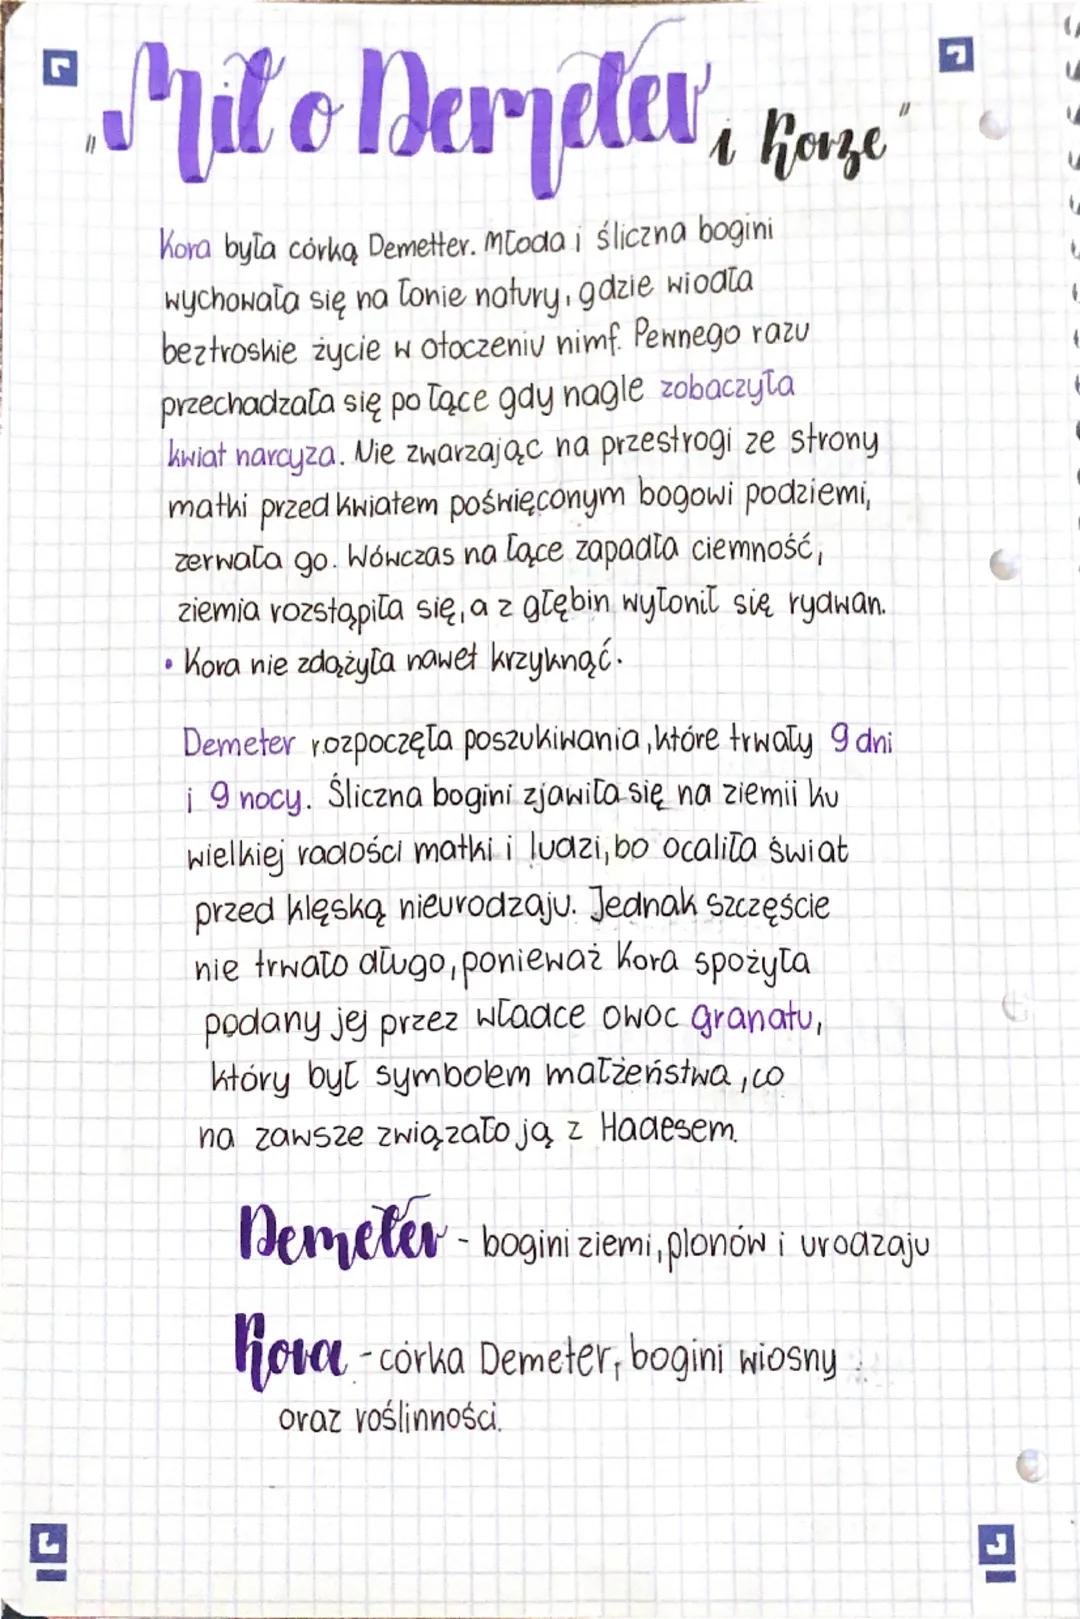 „Mit o Demeter i Korze"
Kora była córką Demetter. Młoda i śliczna bogini
wychowała się na łonie natury, gdzie wiodła
beztroskie życie w otoczeniu nimf. Pewnego razu
przechadzała się po łące gdy nagle zobaczyła
kwiat narcyza. Nie zwarzając na przestrogi ze strony
matki przed kwiatem poświęconym bogowi podziemi,
zerwała go. Wówczas na łące zapadła ciemność,
ziemia rozstąpiła się, a z głębin wyłonił się rydwan.
• Kora nie zdążyła nawet krzyknąć.
Demeter rozpoczęła poszukiwania, które trwały 9 dni
i 9 nocy. Śliczna bogini zjawiła się na ziemii ku
wielkiej radości matki i ludzi, bo ocaliła świat
przed klęską nieurodzaju. Jednak szczęście
nie trwało długo, ponieważ Kora spożyła
podany jej przez władce owoc granatu,
który był symbolem małżeństwa, co
na zawsze związało ją z Hadesem.
Demeter - bogini ziemi, plonów i urodzaju
Kora - córka Demeter, bogini wiosny
oraz roślinności.